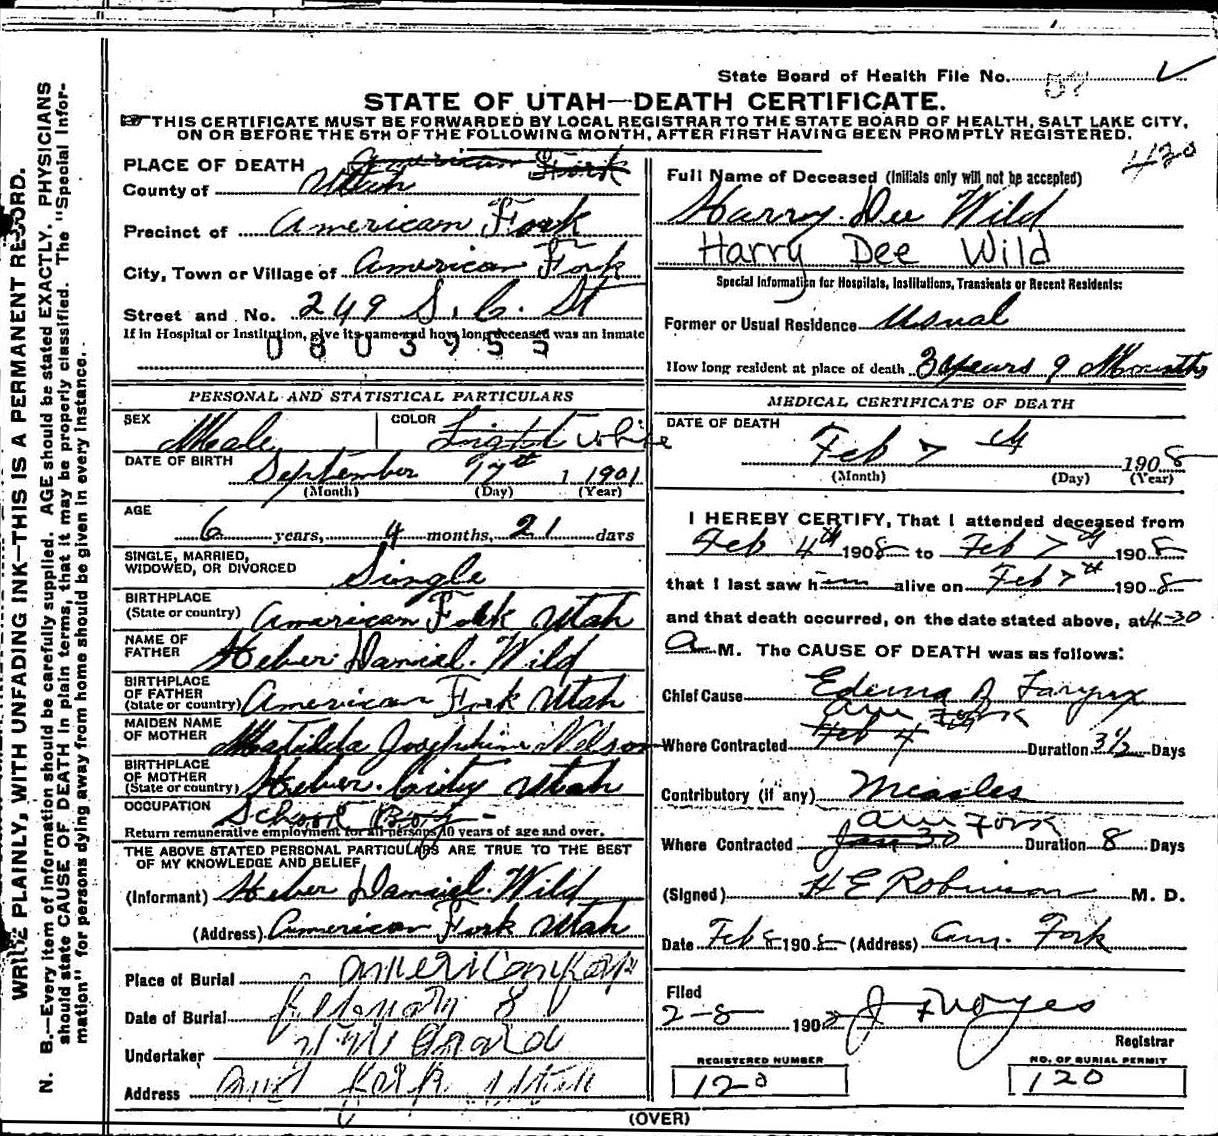 WRITE PLAINLY, WITH UNFADING INK—THIS IS A PERMANENT RECORD.
N. B.—Every item of information should be carefully supplied. AGE should be stated EXACTLY. PHYSICIANS
should state CAUSE OF DEATH in plain terms, that it may be properly classified. The "Special Infor-
mation" for persons dying away from home should be given in every instance.
State Board of Health File No.
STATE OF UTAH—DEATH CERTIFICATE.
THIS CERTIFICATE MUST BE FORWARDED BY LOCAL REGISTRAR TO THE STATE BOARD OF HEALTH, SALT LAKE CITY,
ON OR BEFORE THE 5TH OF THE FOLLOWING MONTH, AFTER FIRST HAVING BEEN PROMPTLY REGISTERED.
PLACE OF DEATH American Fork
County of Utah
Precinct of American Fork
City, Town or Village of American Fork
Street and No. 249 S. C. St
If in Hospital or Institution, give its name and how long deceased was an inmate
0803955
PERSONAL AND STATISTICAL PARTICULARS
SEX Male COLOR Light White
DATE OF BIRTH September 17th 1901
(Month) (Day) (Year)
AGE
6 years, 4 months, 21 days
SINGLE, MARRIED,
WIDOWED, OR DIVORCED Single
BIRTHPLACE
(State or country) American Fork Utah
NAME OF
FATHER Heber Daniel Wild
BIRTHPLACE
OF FATHER
(State or country) American Fork Utah
MAIDEN NAME
OF MOTHER Matilda Josephine Nelson
BIRTHPLACE
OF MOTHER
(State or country) Heber City Utah
OCCUPATION School Boy
Return remunerative employment for all persons 10 years of age and over.
THE ABOVE STATED PERSONAL PARTICULARS ARE TRUE TO THE BEST
OF MY KNOWLEDGE AND BELIEF
(Informant) Heber Daniel Wild
(Address) American Fork Utah
Place of Burial American Fork
Date of Burial February 8
Undertaker
Address Am Fork Utah
430
Full Name of Deceased (Initials only will not be accepted)
Harry Dee Wild
Harry Dee Wild
Special Information for Hospitals, Institutions, Transients or Recent Residents:
Former or Usual Residence Usual
How long resident at place of death 3 years 9 Months
MEDICAL CERTIFICATE OF DEATH
DATE OF DEATH
Feb 7 th 1908
(Month) (Day) (Year)
I HEREBY CERTIFY, That I attended deceased from
Feb 4th 1908 to Feb 7th 1908
that I last saw him alive on Feb 7th 1908
and that death occurred, on the date stated above, at 4-30
A M. The CAUSE OF DEATH was as follows:
Chief Cause Edema Larynx
Am Fork
Where Contracted Feb 4th Duration 3½ Days
Contributory (if any) Measles
Am Fork
Where Contracted Jan 30 Duration 8 Days
(Signed) H E Robinson M. D.
Date Feb 8 1908 (Address) Am. Fork
Filed
2-8 1908 J F Noyes
Registrar
REGISTERED NUMBER
120
NO. OF BURIAL PERMIT
120
(OVER)